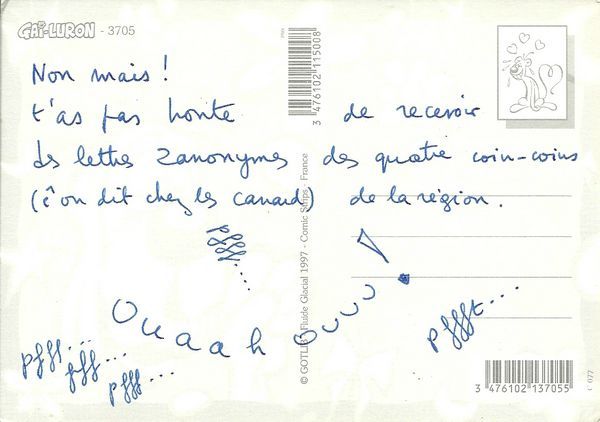 GAI-LURON - 3705
Non mais !
t'as pas honte de recevoir
des lettres zanonymes des quatre coin-coins
(c'on dit chez les canards) de la région.
pffff....
Ouaah ouuu !
pffft...
pfff...
pff...
pfff...
3 476102 115008
© GOTLIB / Fluide Glacial 1997 - Comic Strips - France
3 476102 137055
C 077